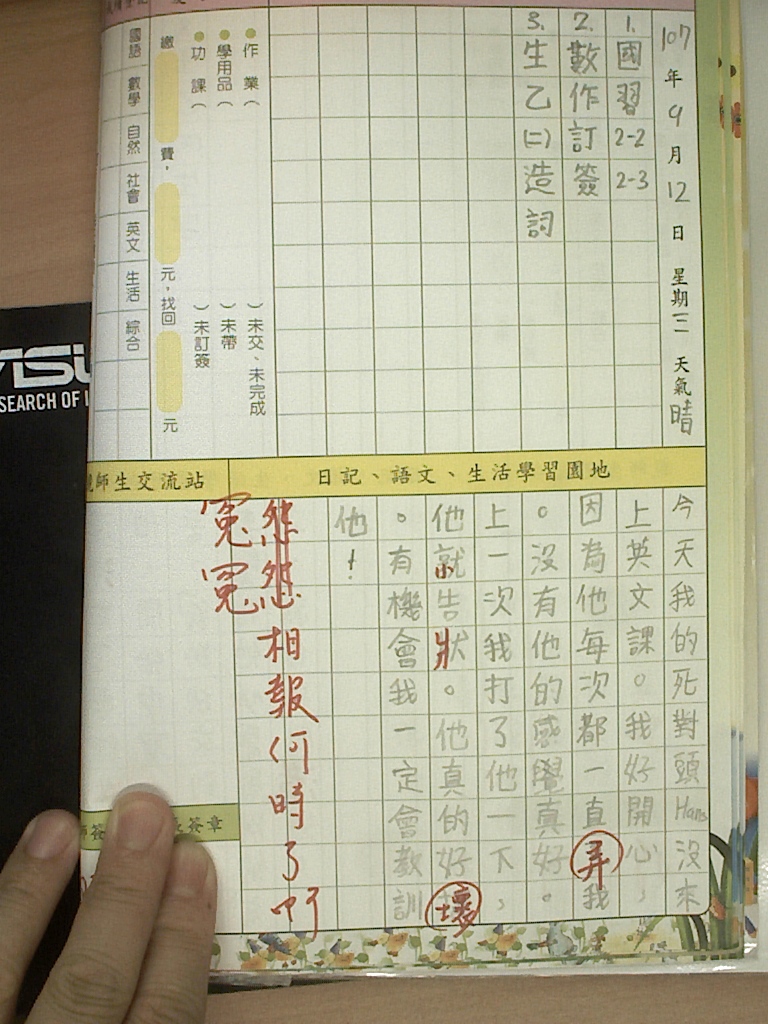 107年9月12日 星期三 天氣晴
1.國習2-2 2-3
2.數作訂簽
3.生乙(二)造詞
●作業( )未交、未完成
●學用品( )未帶
●功課( )未訂簽
繳 費, 元,找回 元
國語 數學 自然 社會 英文 生活 綜合
日記、語文、生活學習園地
師生交流站
今天我的死對頭Hans沒來
上英文課。我好開心,
因為他每次都一直弄我
。沒有他的感覺真好。
上一次我打了他一下,
他就告狀。他真的好壞
。有機會我一定會教訓
他!
怨怨相報何時了啊
冤冤
簽章
ISU
SEARCH OF